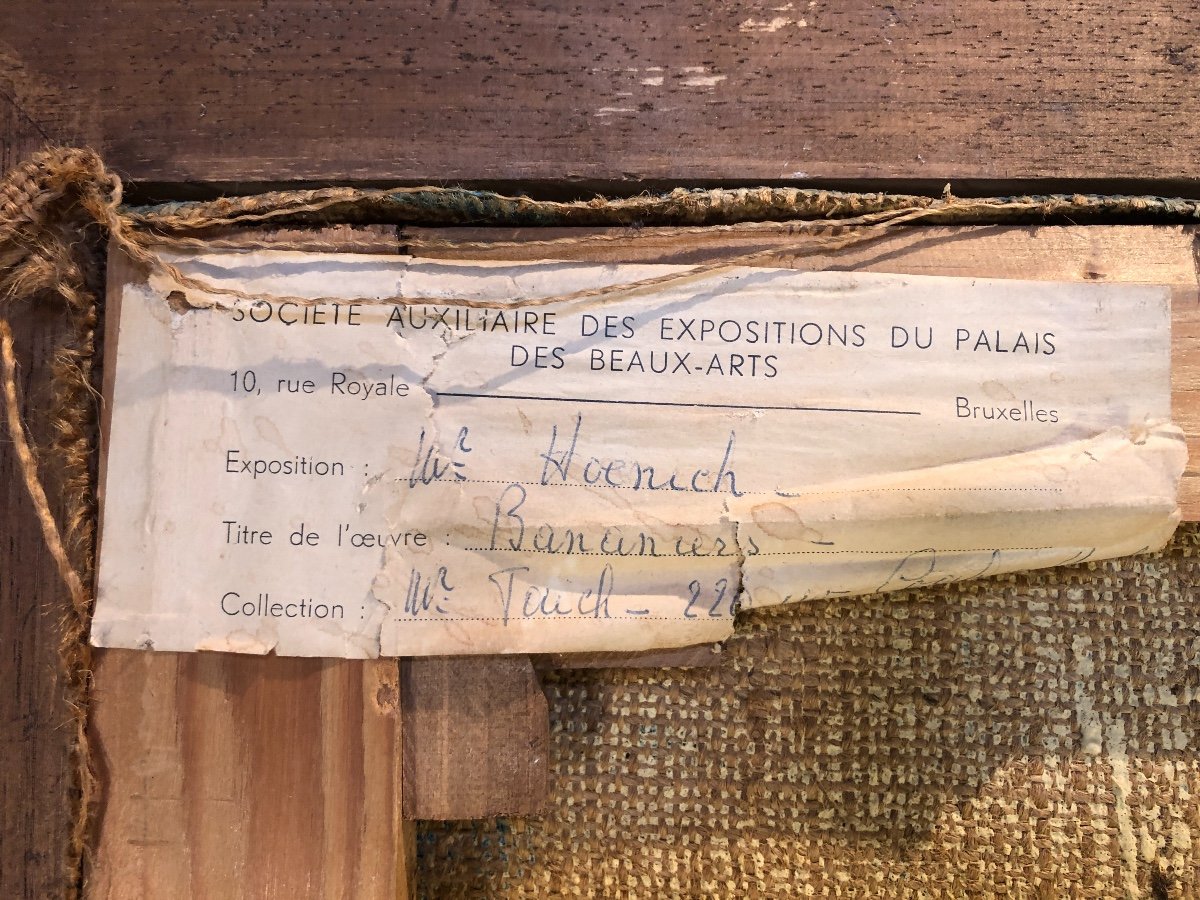 SOCIÉTÉ AUXILIAIRE DES EXPOSITIONS DU PALAIS
DES BEAUX-ARTS
10, rue Royale Bruxelles
Exposition : Mr Hoenich -
Titre de l'œuvre : Bananiers -
Collection : Mr Taich - 22